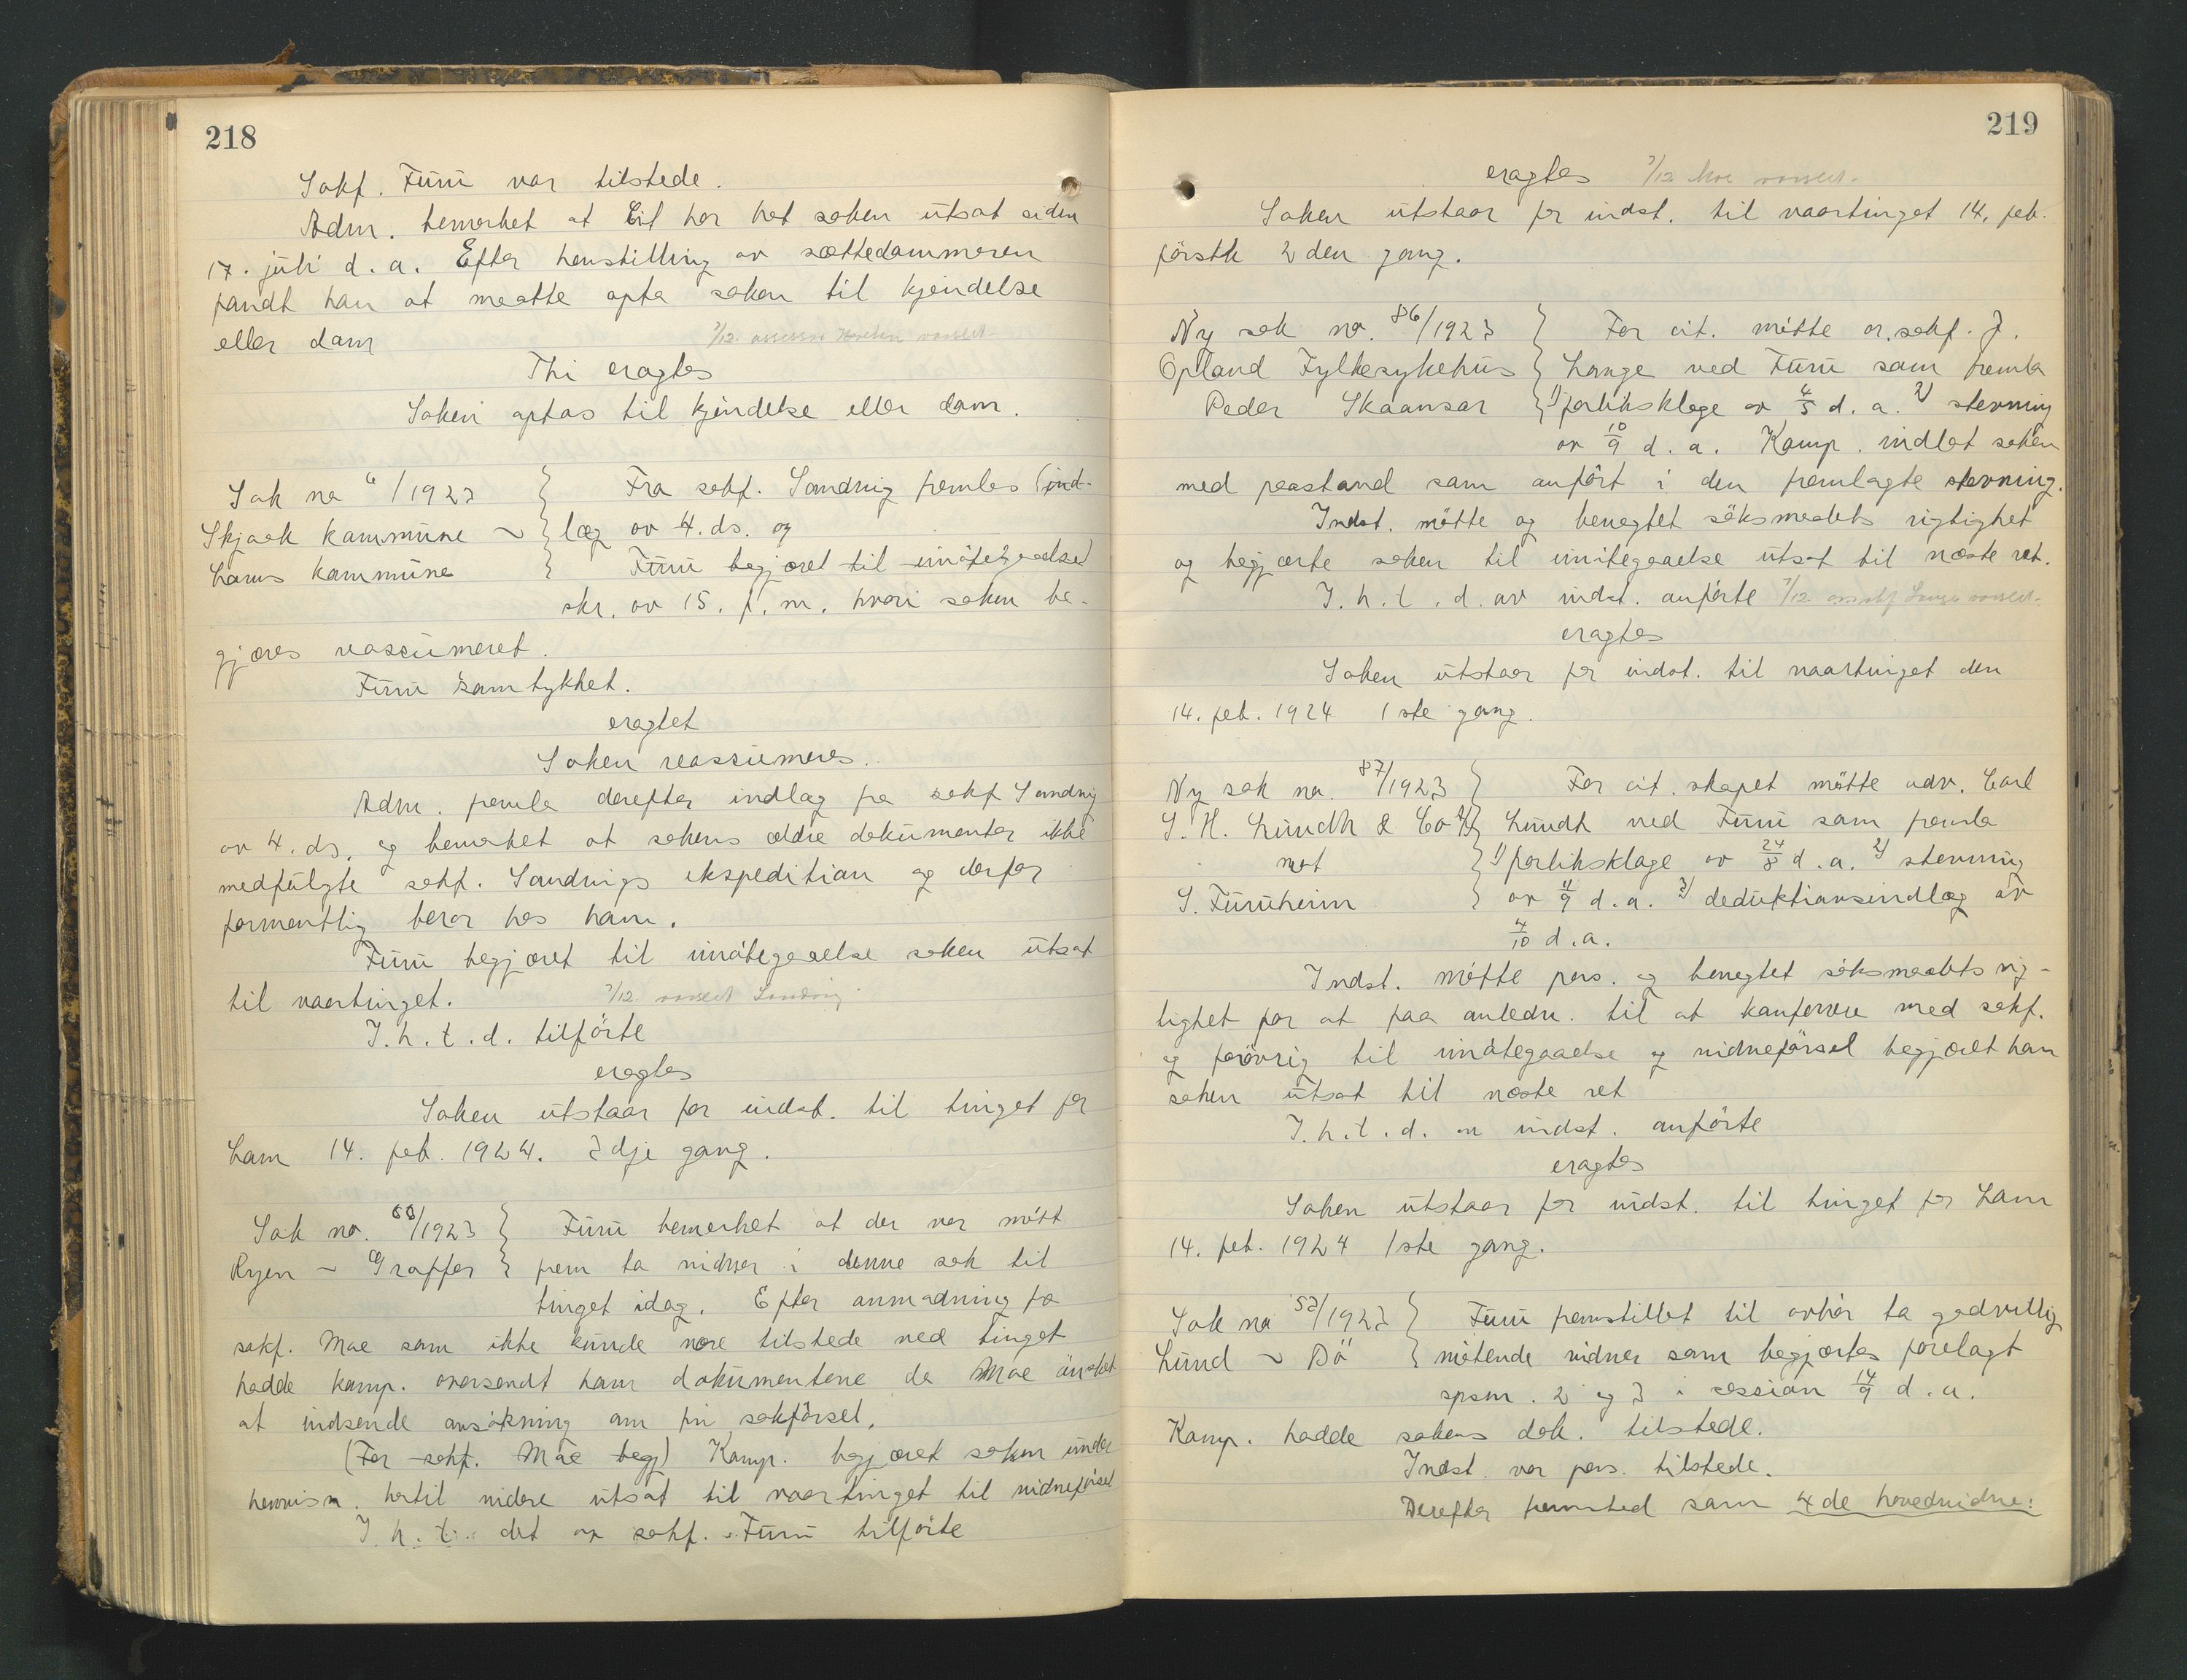 218
Sakf. Furu var tilstede.
Adm. bemerket at Cit har hat saken utsat siden
17. juli d. a. Efter henstilling av sættedommeren
fandt han at maatte opta saken til kjendelse
eller dom 7/12. assessor varslet
Thi eragtes
Saken optas til kjendelse eller dom.
Sak no 6/1923 } Fra sakf. Sandvig fremlas (ind-
Skjaak kommune ~ } læg av 4. ds. og
Loms kommune } Furu begjæret til imøtegaaelse)
skr. av 15. f. m. hvori saken be-
gjæres reassumeret.
Furu samtykket.
eragtet
Saken reassumeres.
Adm. fremla derefter indlæg fra sakf Sandvig
av 4. ds. og bemerket at sakens ældre dokumenter ikke
medfulgte sakf. Sandvigs ekspedition og derfor
formentlig beror hos ham.
Furu begjæret til imøtegaaelse saken utsat
til vaartinget. 7/12 varslet Sandvig.
I. h. t. d. tilførte
eragtes
Saken utstaar for indst. til tinget for
Lom 14. feb. 1924. 3dje gang.
Sak no. 68/1923 } Furu bemerket at der var møtt
Ryen ~ Graffer } frem to vidner i denne sak til
tinget idag. Efter anmodning fra
sakf. Moe som ikke kunde være tilstede ved tinget
hadde komp. oversendt ham dokumentene da Moe ønsket
at indsende ansøkning om fri sakførsel.
(For sakf. Moe begj) Komp. begjæret saken under
henvisn. hertil videre utsat til vaartinget til vidneførsel
I. h. t. det av sakf. Furu tilførte
219
eragtes 7/12 Moe varslet.
Saken utstaar for indst. til vaartinget 14. feb.
førstk 2den gang.
Ny sak no. 86/1923 } For cit. møtte or.sakf. J.
Opland Fylkesykehus } Lange ved Furu som fremla
Peder Skaansar } 1) forliksklage av 4/5 d. a. 2) stevning
av 10/9 d. a. Komp. indlot saken
med paastand som anført i den fremlagte stevning.
Indst. møtte og benegtet søksmaalets rigtighet
og begjærte saken til imøtegaaelse utsat til næste ret.
I. h. t. d. av indst. anførte 7/12 orsakf Lange varslet.
eragtes
Saken utstaar for indst. til vaartinget den
14. feb. 1924 1ste gang.
Ny sak no. 87/1923 } For cit. skapet møtte adv. Carl
S. H. Lundh & Co } Lundh ved Furu som fremla
mot } 1) forliksklage av 24/8 d. a. 2) stevning
S. Furuheim } av 11/9 d. a. 3) deduktionsindlæg av
4/10 d. a.
Indst. møtte pers. og benegtet søksmaalets rig-
tighet for at faa anledn. til at konferere med sakf.
og forøvrig til imøtegaaelse og vidneførsel begjæret han
saken utsat til næste ret
I. h. t. d. av indst. anførte
eragtes
Saken utstaar for indst. til tinget for Lom
14. feb. 1924 1ste gang.
Sak no 52/1923 } Furu fremstillet til avhør to godvillig
Lund ~ Bø } møtende vidner som begjærtes forelagt
spsm. 2 og 3 i session 14/9 d. a.
Komp. hadde sakens dok. tilstede.
Indst. var pers. tilstede.
Derefter fremsted som 4de hovedvidne: